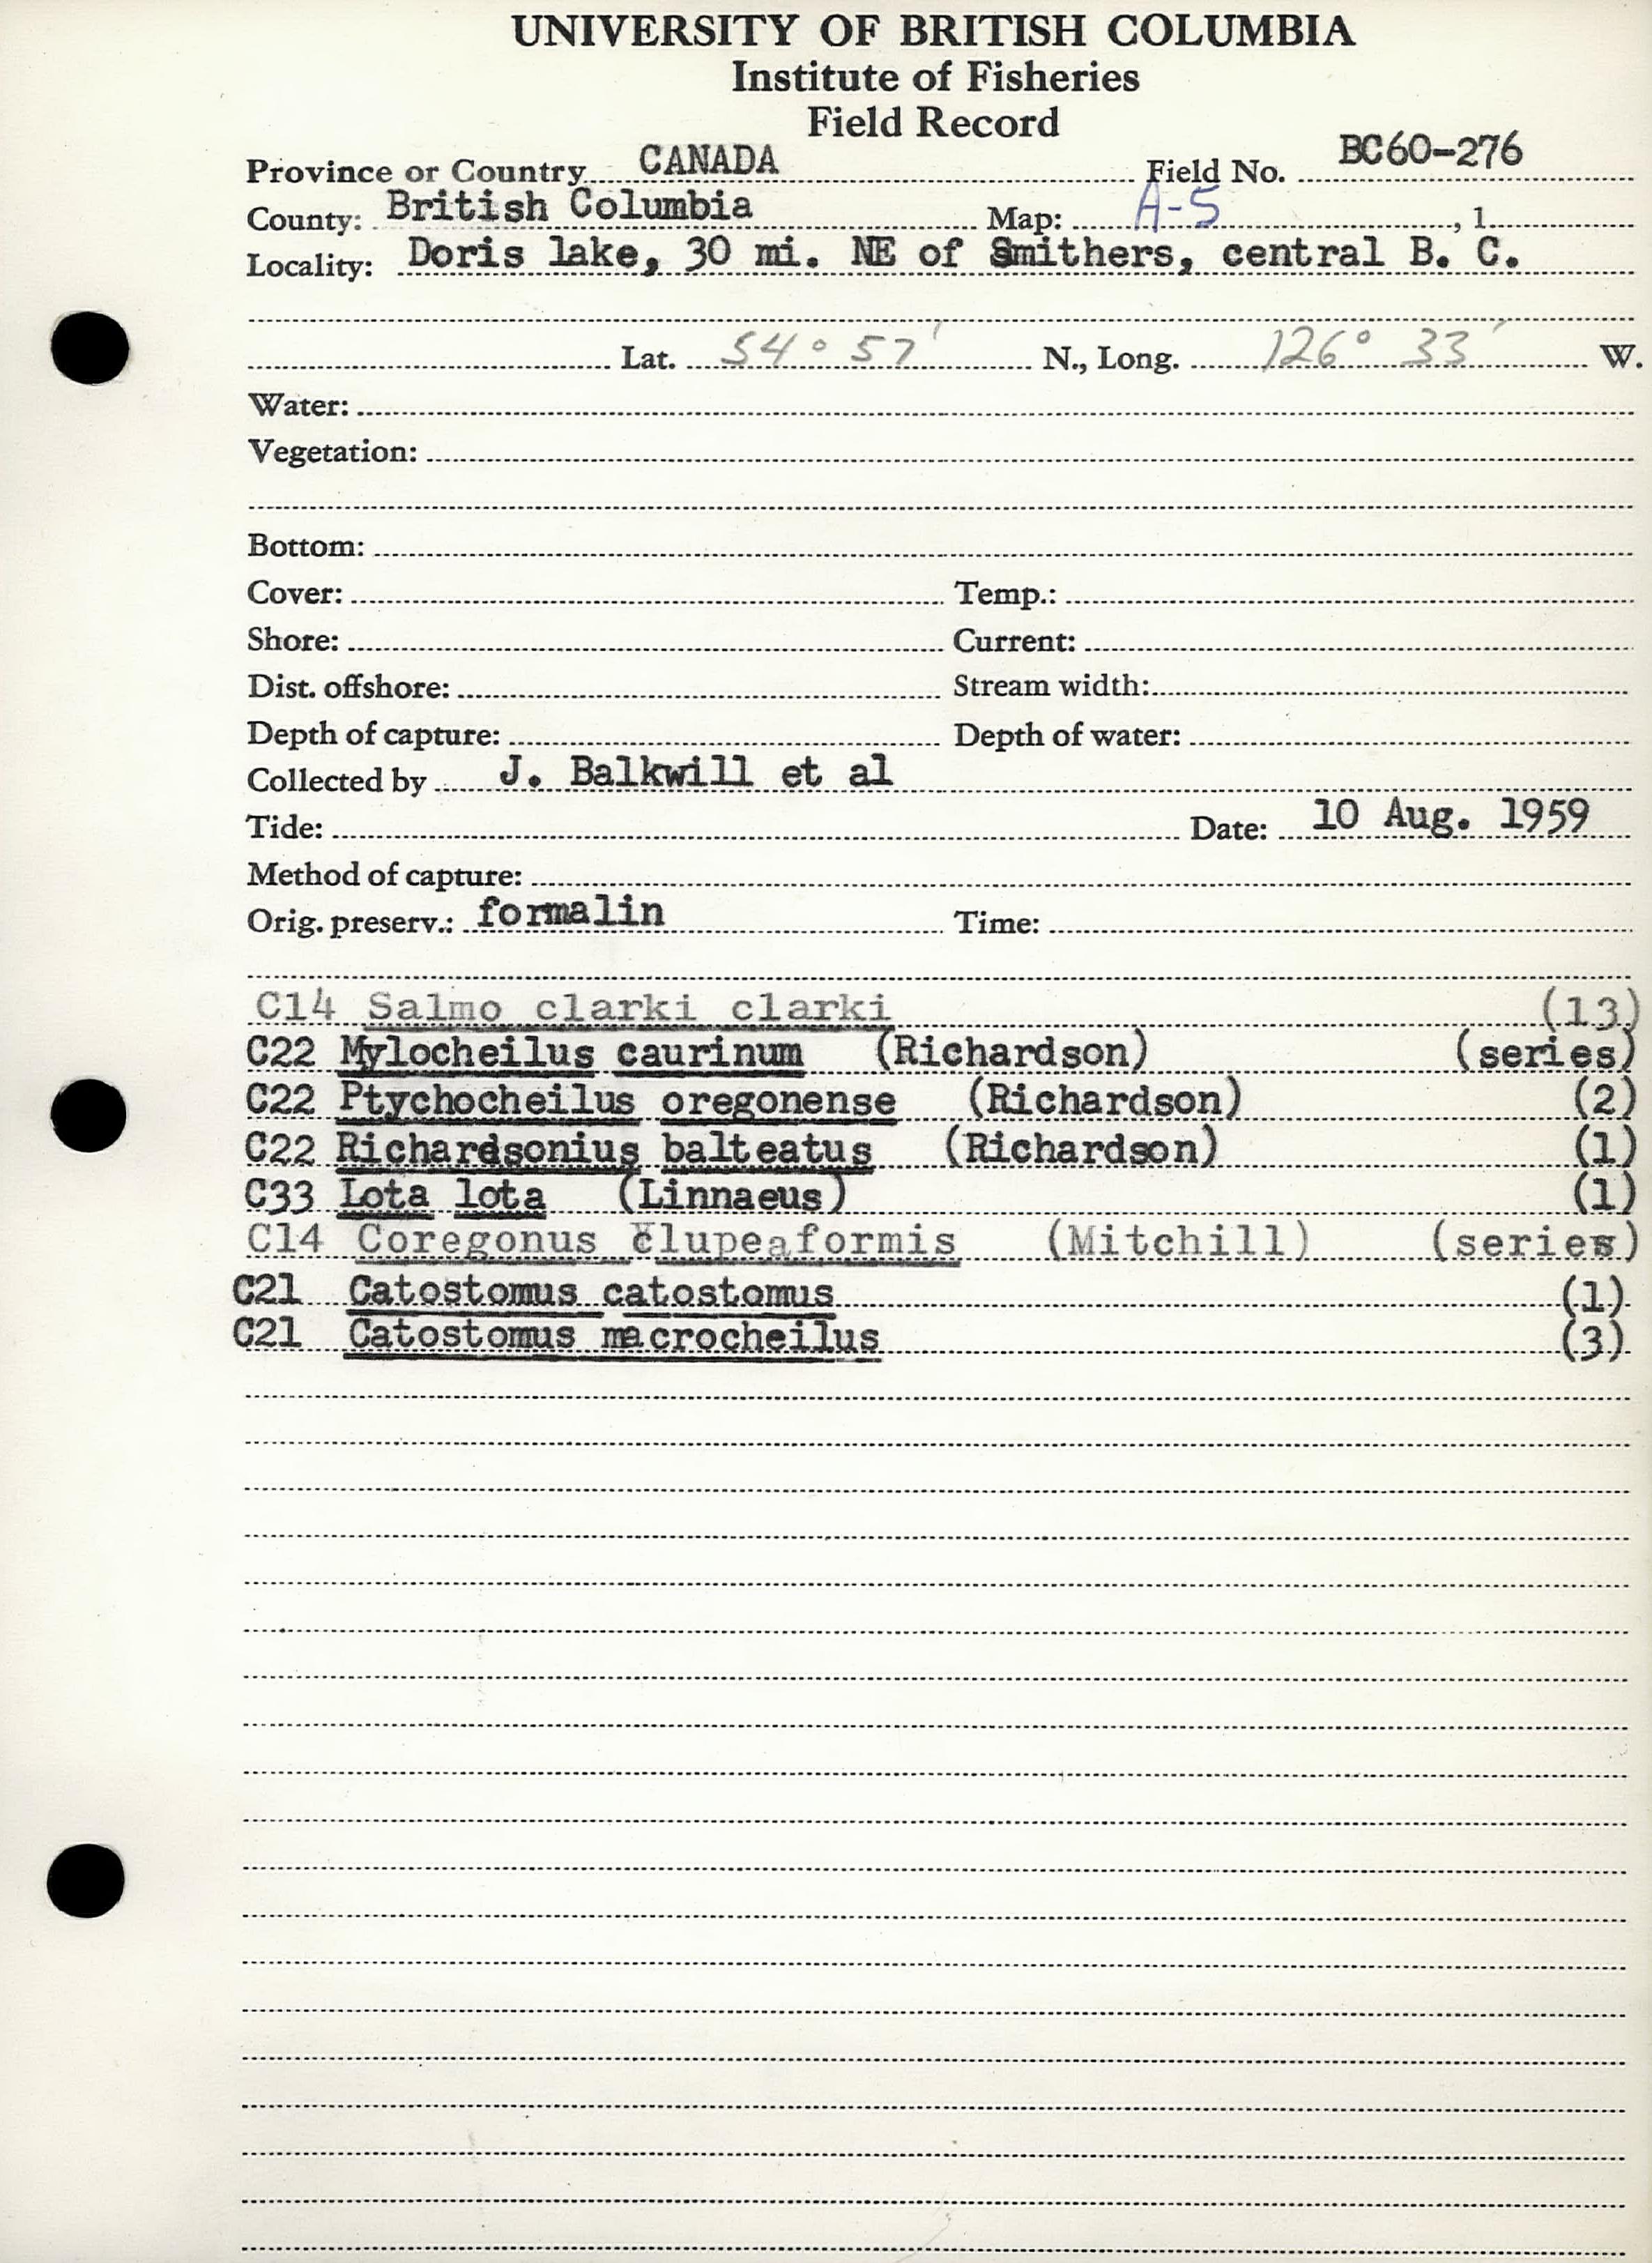 UNIVERSITY OF BRITISH COLUMBIA
Institute of Fisheries
Field Record
Province or Country CANADA Field No. BC60-276
County: British Columbia Map: A-5 , 1
Locality: Doris lake, 30 mi. NE of Smithers, central B. C.
Lat. 54° 57' N., Long. 126° 33' W.
Water:
Vegetation:
Bottom:
Cover: Temp.:
Shore: Current:
Dist. offshore: Stream width:
Depth of capture: Depth of water:
Collected by J. Balkwill et al
Tide: Date: 10 Aug. 1959
Method of capture:
Orig. preserv.: formalin Time:
C14 Salmo clarki clarki (13)
C22 Mylocheilus caurinum (Richardson) (series)
C22 Ptychocheilus oregonense (Richardson) (2)
C22 Richardsonius balteatus (Richardson) (1)
C33 Lota lota (Linnaeus) (1)
C14 Coregonus clupeaformis (Mitchill) (series)
C21 Catostomus catostomus (1)
C21 Catostomus macrocheilus (3)